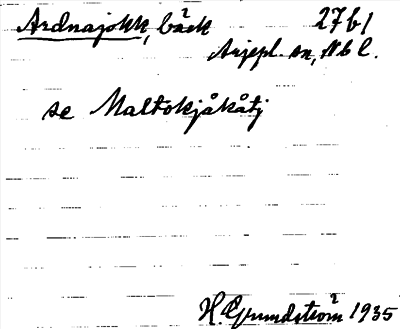 Ardnajokk, bäck 27b1
Arjepl. sn, Nbl.
se Maltokjåkåtj
H. Grundström 1935